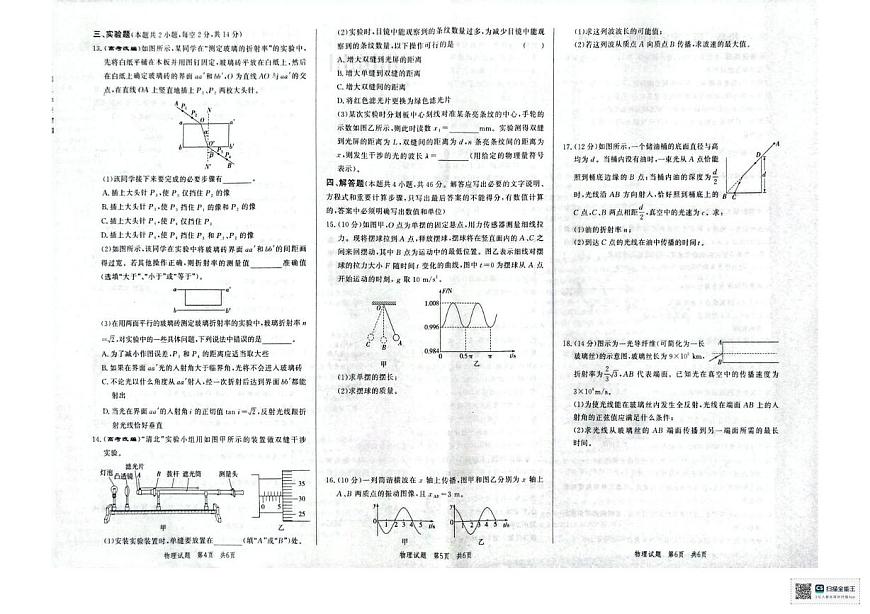 三、实验题(本题共2小题,每空2分,共14分)
13.(高考改编)如图所示,某同学在“测定玻璃的折射率”的实验中,
先将白纸平铺在木板并用图钉固定,玻璃砖平放在白纸上,然后
在白纸上确定玻璃砖的界面aa′和bb′,O为直线AO与aa′的交
点,在直线OA上竖直地插上P₁、P₂两枚大头针。
(1)该同学接下来要完成的必要步骤有________。
A.插上大头针P₃,使P₃仅挡住P₂的像
B.插上大头针P₃,使P₃挡住P₁的像和P₂的像
C.插上大头针P₄,使P₄仅挡住P₃
D.插上大头针P₄,使P₄挡住P₃和P₁、P₂的像
(2)如图所示,该同学在实验中将玻璃砖界面aa′和bb′的间距画
得过宽。若其他操作正确,则折射率的测量值________准确值
(选填“大于”、“小于”或“等于”)。
(3)在用两面平行的玻璃砖测定玻璃折射率的实验中,玻璃折射率n
=√2,对实验中的一些具体问题,下列说法中错误的是________。
A.为了减小作图误差,P₃和P₄的距离应适当取大些
B.如果在界面aa′光的入射角大于临界角,光将不会进入玻璃砖
C.不论光以什么角度从aa′射入,经一次折射后达到界面bb′都能
射出
D.当光在界面aa′的入射角i的正切值tan i=√2,反射光线跟折
射光线恰好垂直
14.(高考改编)“清北”实验小组用如图甲所示的装置做双缝干涉
实验。
灯泡 凸透镜 滤光片 A B 拨杆 遮光筒 测量头
甲
0 5
35
30
25
乙
(1)安装实验装置时,单缝要放置在________(填“A”或“B”)处。
物理试题 第4页 共6页
(2)实验时,目镜中能观察到的条纹数量过多,为减少目镜中能观
察到的条纹数量,以下操作可行的是 ( )
A.增大双缝到光屏的距离
B.增大单缝到双缝的距离
C.增大双缝间的距离
D.将红色滤光片更换为绿色滤光片
(3)某次实验时分划板中心刻线对准某条亮条纹的中心,手轮的
示数如图乙所示,则此时读数x₁=________mm。实验测得双缝
到光屏的距离为L,双缝间的距离为d,n条亮条纹间的距离为
x,则发生干涉的光的波长λ=________(用给定的物理量符号
表示)。
四、解答题(本题共4小题,共46分。解答应写出必要的文字说明、
方程式和重要计算步骤,只写出最后答案的不能得分,有数值计算
的,答案中必须明确写出数值和单位)
15.(10分)如图甲,O点为单摆的固定悬点,用力传感器测量细线拉
力。现将摆球拉到A点,释放摆球,摆球将在竖直面内的A、C之
间来回摆动,其中B点为运动中的最低位置。图乙表示细线对摆
球的拉力大小F随时间t变化的曲线,图中t=0为摆球从A点
开始运动的时刻,g取10 m/s²。
O C B A
甲
F/N
1.008
0.996
0.984
0 0.5π π t/s
乙
(1)求单摆的摆长;
(2)求摆球的质量。
16.(10分)一列简谐横波在x轴上传播,图甲和图乙分别为x轴上
A、B两质点的振动图像,且x_AB=3 m。
y 0 1 2 3 4 5 t/s
甲
y 0 1 2 3 4 5 t/s
乙
物理试题 第5页 共6页
(1)求这列波波长的可能值;
(2)若这列波从质点A向质点B传播,求波速的最大值。
17.(12分)如图所示,一个储油桶的底面直径与高
均为d。当桶内没有油时,一束光从A点恰能
照到桶底边缘的B点;当桶内油的深度为d/2
时,光线沿AB方向射入,恰好照到桶底上的
C点,C、B两点相距d/4,真空中的光速为c,求:
(1)油的折射率n;
(2)到达C点的光线在油中传播的时间t。
18.(14分)图示为一光导纤维(可简化为一长
玻璃丝)的示意图,玻璃丝长为9×10³ km,
折射率为2/3√3,AB代表端面。已知光在真空中的传播速度为
3×10⁸m/s。
(1)为使光线能在玻璃丝内发生全反射,光线在端面AB上的入
射角的正弦值应满足什么条件;
(2)求光线从玻璃丝的AB端面传播到另一端面所需的最长
时间。
物理试题 第6页 共6页
扫描全能王